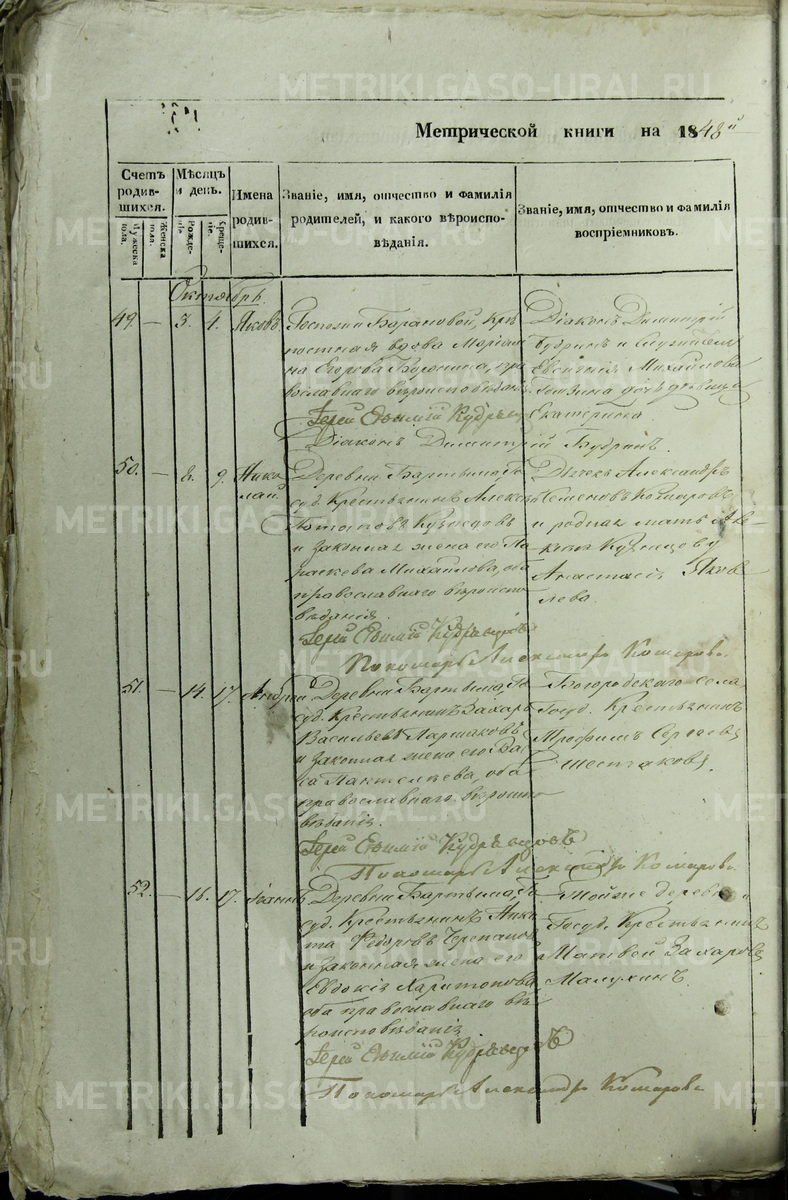 Метрической книги на 1848й
Счетъ родившихся.
Мѣсяцъ и день.
Имена родившихся.
Званіе, имя, отчество и фамилія родителей, и какого вѣроисповѣданія.
Званіе, имя, отчество и фамилія воспріемниковъ.
Мужеска пола.
Женска пола.
Рожденія.
Крещенія.
Октябрь
49. — 3. 4. Яковъ
Госпожи Барановой, крѣ
постная вдова
на Егорова
вославнаго вѣроисповѣданія
Іерей Евѳимій Кудрявцовъ
Діаконъ Димитрій Будринъ
Діаконъ Димитрій
Будринъ и
Михайлова
дочь дѣвица
Екатерина
50. — 8. 9. Нико
лай
Деревни Бартыма, Го
суд. Крестьянинъ Алексѣй
Потаповъ Кузнецовъ
и законная жена его Па
раскева Михайлова, оба
православнаго вѣроиспо
вѣданія
Іерей Евѳимій Кудрявцовъ
Пономарь Александръ Комаровъ
Дьячекъ Александръ
Семеновъ Комаровъ
и родная мать
Кузнецову
Анастасія Яков
лева
51. — 14. 17. Андрей
Деревни Бартыма, Го
суд. Крестьянинъ Захаръ
Васильевъ Ларшаковъ
и законная жена его Ва
са Пантелѣева, оба
православнаго вѣроиспо
вѣданія.
Іерей Евѳимій Кудрявцовъ
Пономарь Александръ Комаровъ
Богородскаго села
Госуд. Крестьянинъ
Трофимъ Сергѣевъ
Шестаковъ.
52. — 16. 17. Іоаннъ
Деревни Бартыма, Го
суд. Крестьянинъ Ники
та Ѳедоровъ Черепановъ
и законная жена его
Евдокія Харитонова,
оба православнаго вѣ
роисповѣданія
Іерей Евѳимій Кудрявцовъ
Пономарь Александръ Комаровъ
Тойже деревни
Госуд. Крестьянинъ
Матвей Захаровъ
Малухинъ.
METRIKI.GASO-URAL.RU